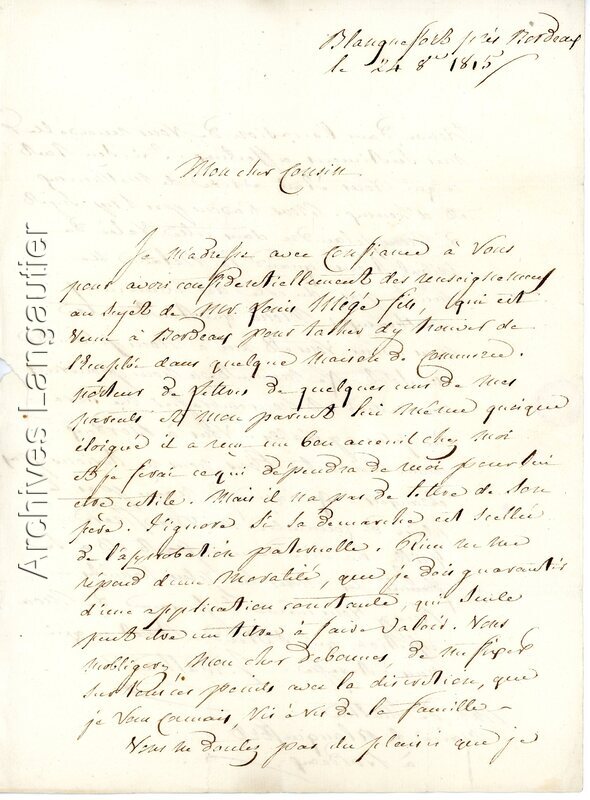 Blanquefort près Bordeaux
le 24 8bre 1815
Mon cher Cousin
Je m'adresse avec confiance à Vous
pour avoir confidentiellement des renseignemens
au sujet de Mr. Louis Mégé fils, qui est
venu à Bordeaux pour tacher d'y trouver de
l'Emploi dans quelque maison de commerce.
porteur de lettres de quelques uns de mes
parents et mon parent lui même quoique
éloigné il a reçu un bon acceuil chez moi
et je ferai ce qui dépendra de moi pour lui
etre utile. Mais il n'a pas de lettre de son
père. J'ignore si sa demarche est scellée
de l'approbation paternelle. Rien ne me
répond d'une Moralité, que je dois guarantir
d'une application constante, qui seule
peut etre un titre à faire valoir. Vous
m'obligerez Mon cher Debonnes, de me fixer
sur tous ces points avec la discretion, que
je Vous connais, vis à vis de la famille -
Vous ne doutez pas du plaisir que je
Archives Langautier